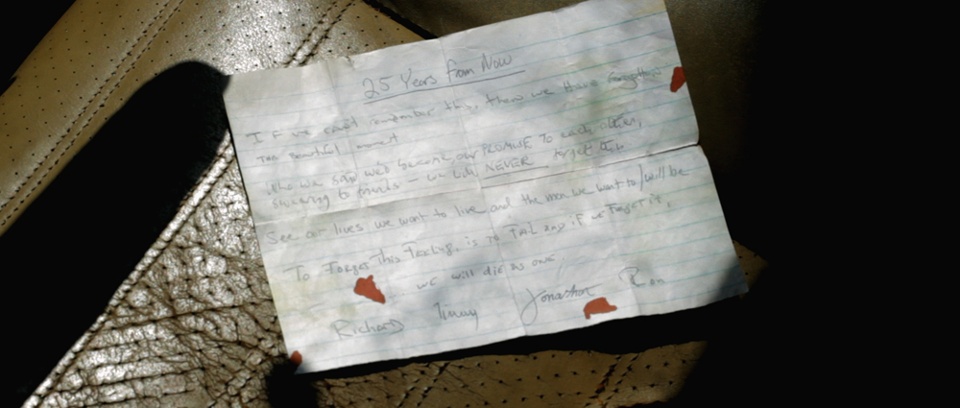 25 Years from Now
IF we can't remember this, then we Have forgotten
This Beautiful moment
Who we said we'd become, our PROMISE To each other,
Swearing to friends – we will NEVER forget this.
See our lives, we want to live and the men we want to/will be
To Forget this feeling, is to FAIL and if we Forget it,
we will die as one
Richard Timmy Jonathon Ron